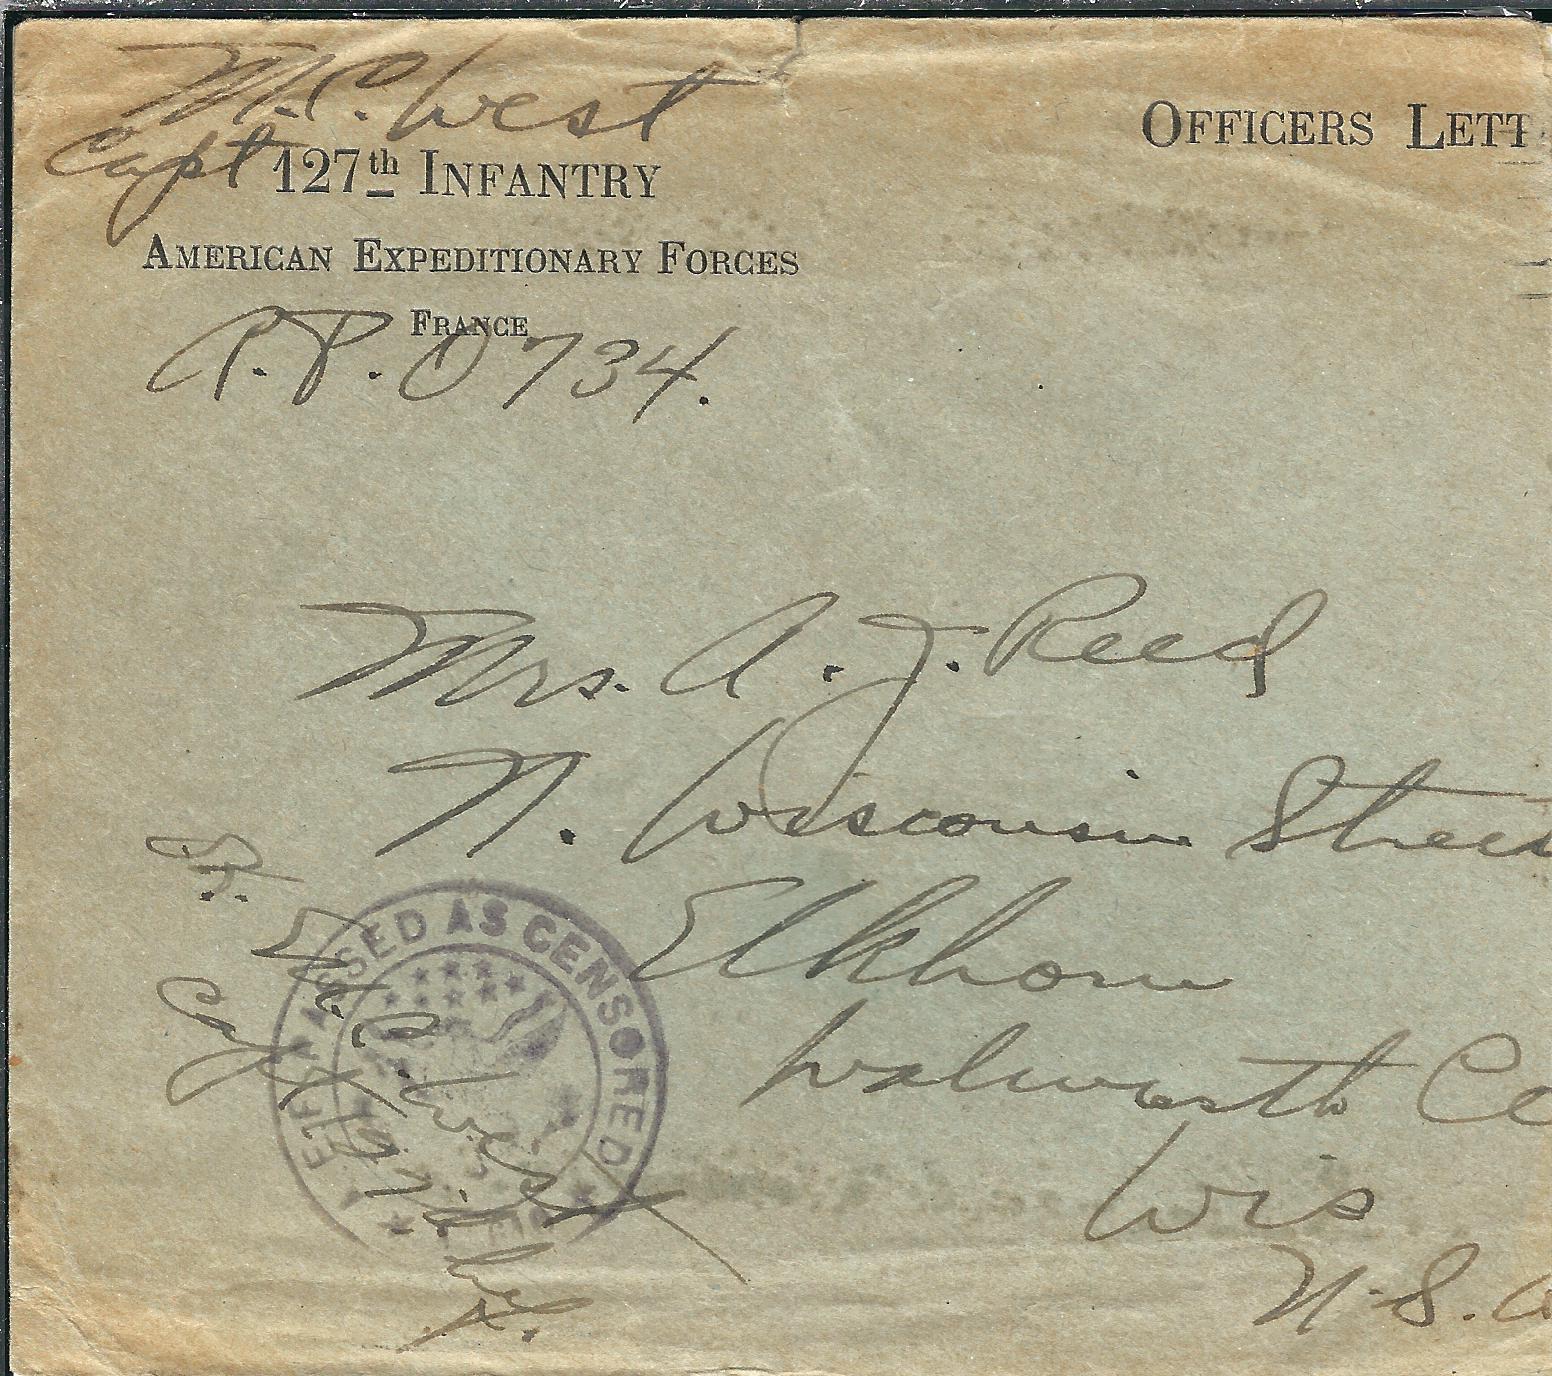 M.P. West
Capt 127th INFANTRY
AMERICAN EXPEDITIONARY FORCES
FRANCE
A.P.O 734.
OFFICERS LETT
Mrs. A. J. Reed
N. Wisconsin Street
Elkhorn
Walworth Co
Wis
U.S.A
O.K.
M.P. West
Capt 127th Inf.
A.E.F. PASSED AS CENSORED